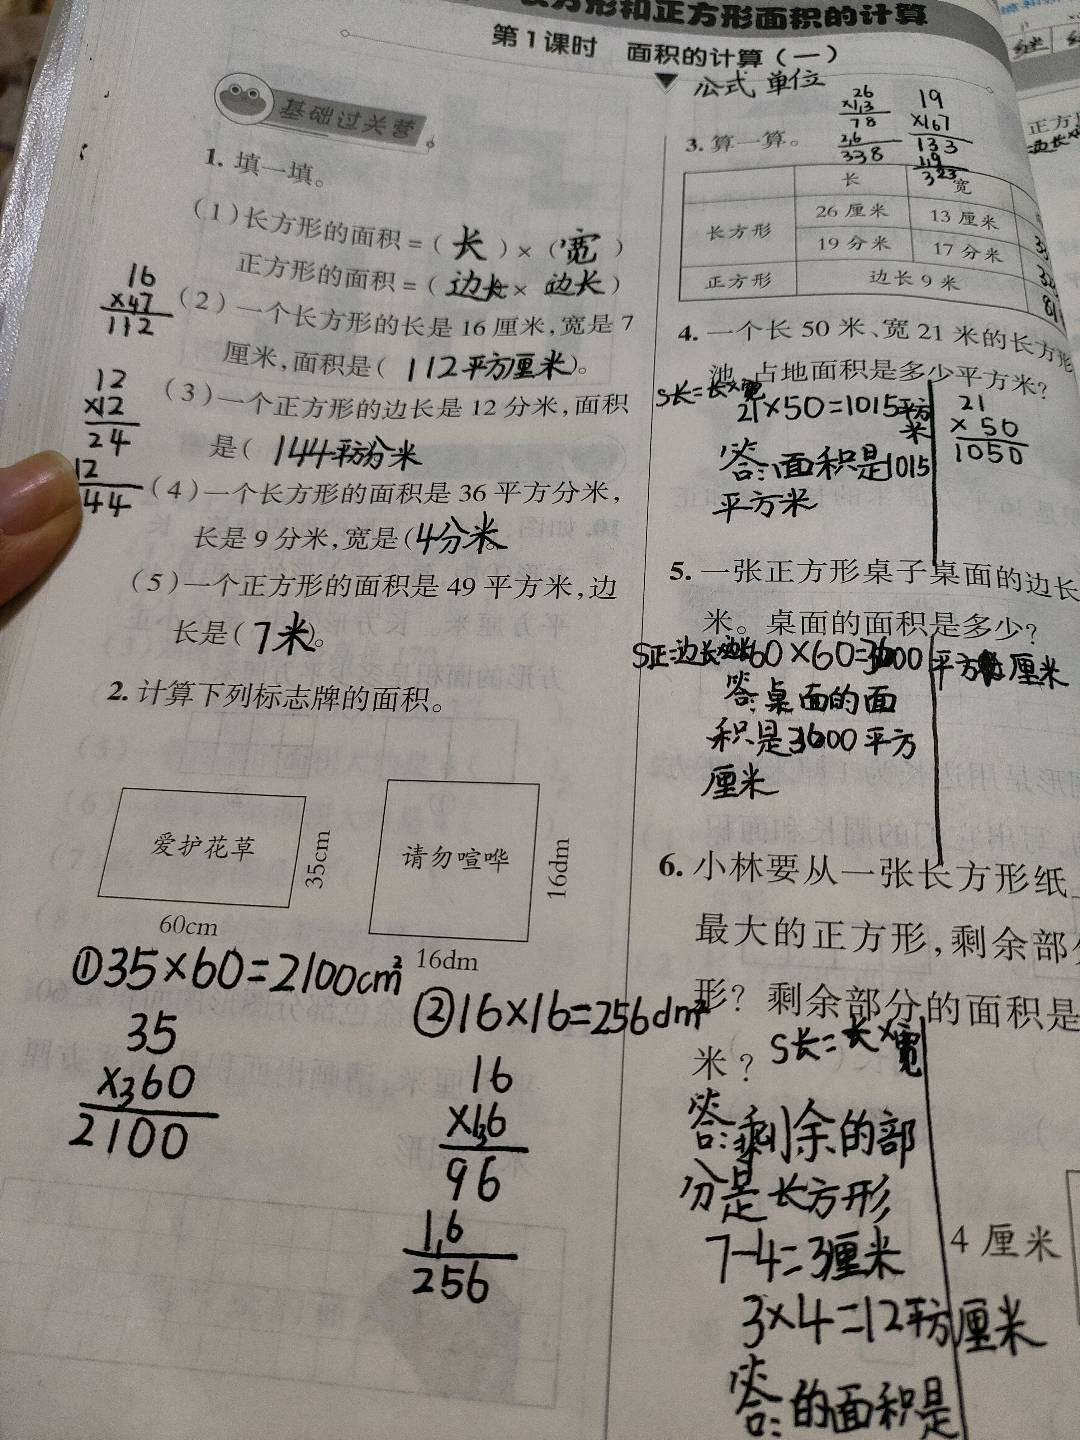 方形和正方形面积的计算
第1课时 面积的计算(一)
公式 单位
基础过关营
1. 填一填。
(1)长方形的面积=( 长 )×( 宽 )
正方形的面积=( 边长× 边长 )
(2)一个长方形的长是 16 厘米,宽是 7
厘米,面积是( 112平方厘米 )。
16
×47
112
(3)一个正方形的边长是 12 分米,面积
是( 144平方分米
12
×12
24
12
44
(4)一个长方形的面积是 36 平方分米,
长是 9 分米,宽是(4分米。
(5)一个正方形的面积是 49 平方米,边
长是( 7米)。
2. 计算下列标志牌的面积。
爱护花草
35cm
60cm
请勿喧哗
16dm
16dm
①35×60=2100cm²
35
×360
2100
②16×16=256dm²
16
×136
96
16
256
3. 算一算。
26
×13
78
26
338
19
×167
133
19
323
长 宽
长方形 26 厘米 13 厘米
19 分米 17 分米
正方形 边长 9 米
4. 一个长 50 米、宽 21 米的长方形
池,占地面积是多少平方米?
S长=长×宽
21×50=1015平方
米
21
×50
1050
答:面积是1015
平方米
5. 一张正方形桌子桌面的边长
米。桌面的面积是多少?
S正=边长×边长60×60=3600平方厘米
答:桌面的面
积是3600平方
厘米
6. 小林要从一张长方形纸
最大的正方形,剩余部
形? 剩余部分的面积是
米?
S长=长×宽
答:剩余的部
分是长方形
7-4=3厘米
4 厘米
3×4=12平方厘米
答:的面积是
正方
边长×